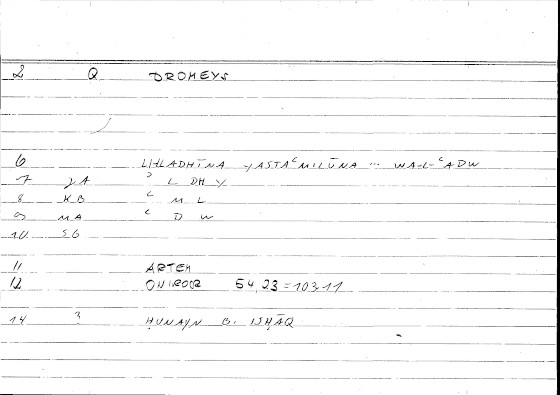 2 Q DROMEYS
6 LI-LLADHĪNA YASTAʿMILŪNA ... WA-L-ʿADW
7 JA ʾ L DH Y
8 KB ʿ M L
9 MA ʿ D W
10 SG
11 ARTEM
12 ONIROCR 54,23=103,11
14 ? ḤUNAYN B. ISḤĀQ